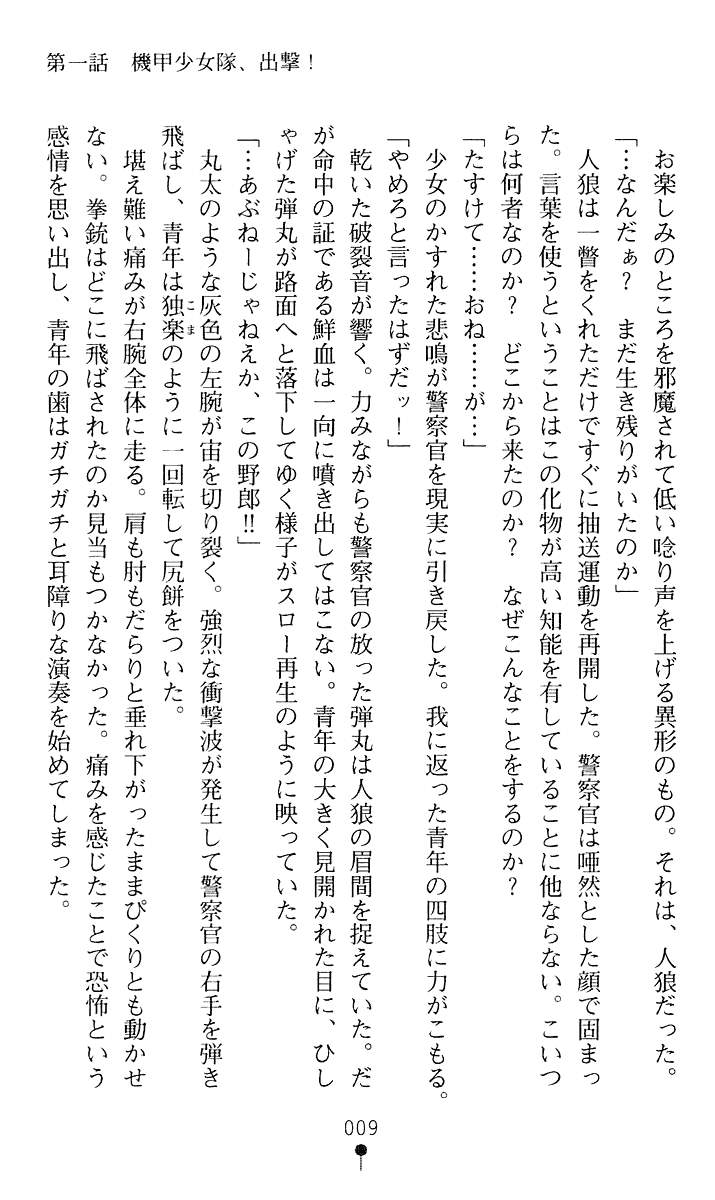 第一話　機甲少女隊、出撃！
お楽しみのところを邪魔されて低い唸り声を上げる異形のもの。それは、人狼だった。
「…なんだぁ？　まだ生き残りがいたのか」
人狼は一瞥をくれただけですぐに抽送運動を再開した。警察官は唖然とした顔で固まっ
た。言葉を使うということはこの化物が高い知能を有していることに他ならない。こいつ
らは何者なのか？　どこから来たのか？　なぜこんなことをするのか？
「たすけて……おね……が…」
少女のかすれた悲鳴が警察官を現実に引き戻した。我に返った青年の四肢に力がこもる。
「やめろと言ったはずだッ！」
乾いた破裂音が響く。力みながらも警察官の放った弾丸は人狼の眉間を捉えていた。だ
が命中の証である鮮血は一向に噴き出してはこない。青年の大きく見開かれた目に、ひし
ゃげた弾丸が路面へと落下してゆく様子がスロー再生のように映っていた。
「…あぶねーじゃねえか、この野郎‼」
丸太のような灰色の左腕が宙を切り裂く。強烈な衝撃波が発生して警察官の右手を弾き
飛ばし、青年は独楽（こま）のように一回転して尻餅をついた。
堪え難い痛みが右腕全体に走る。肩も肘もだらりと垂れ下がったままぴくりとも動かせ
ない。拳銃はどこに飛ばされたのか見当もつかなかった。痛みを感じたことで恐怖という
感情を思い出し、青年の歯はガチガチと耳障りな演奏を始めてしまった。
009